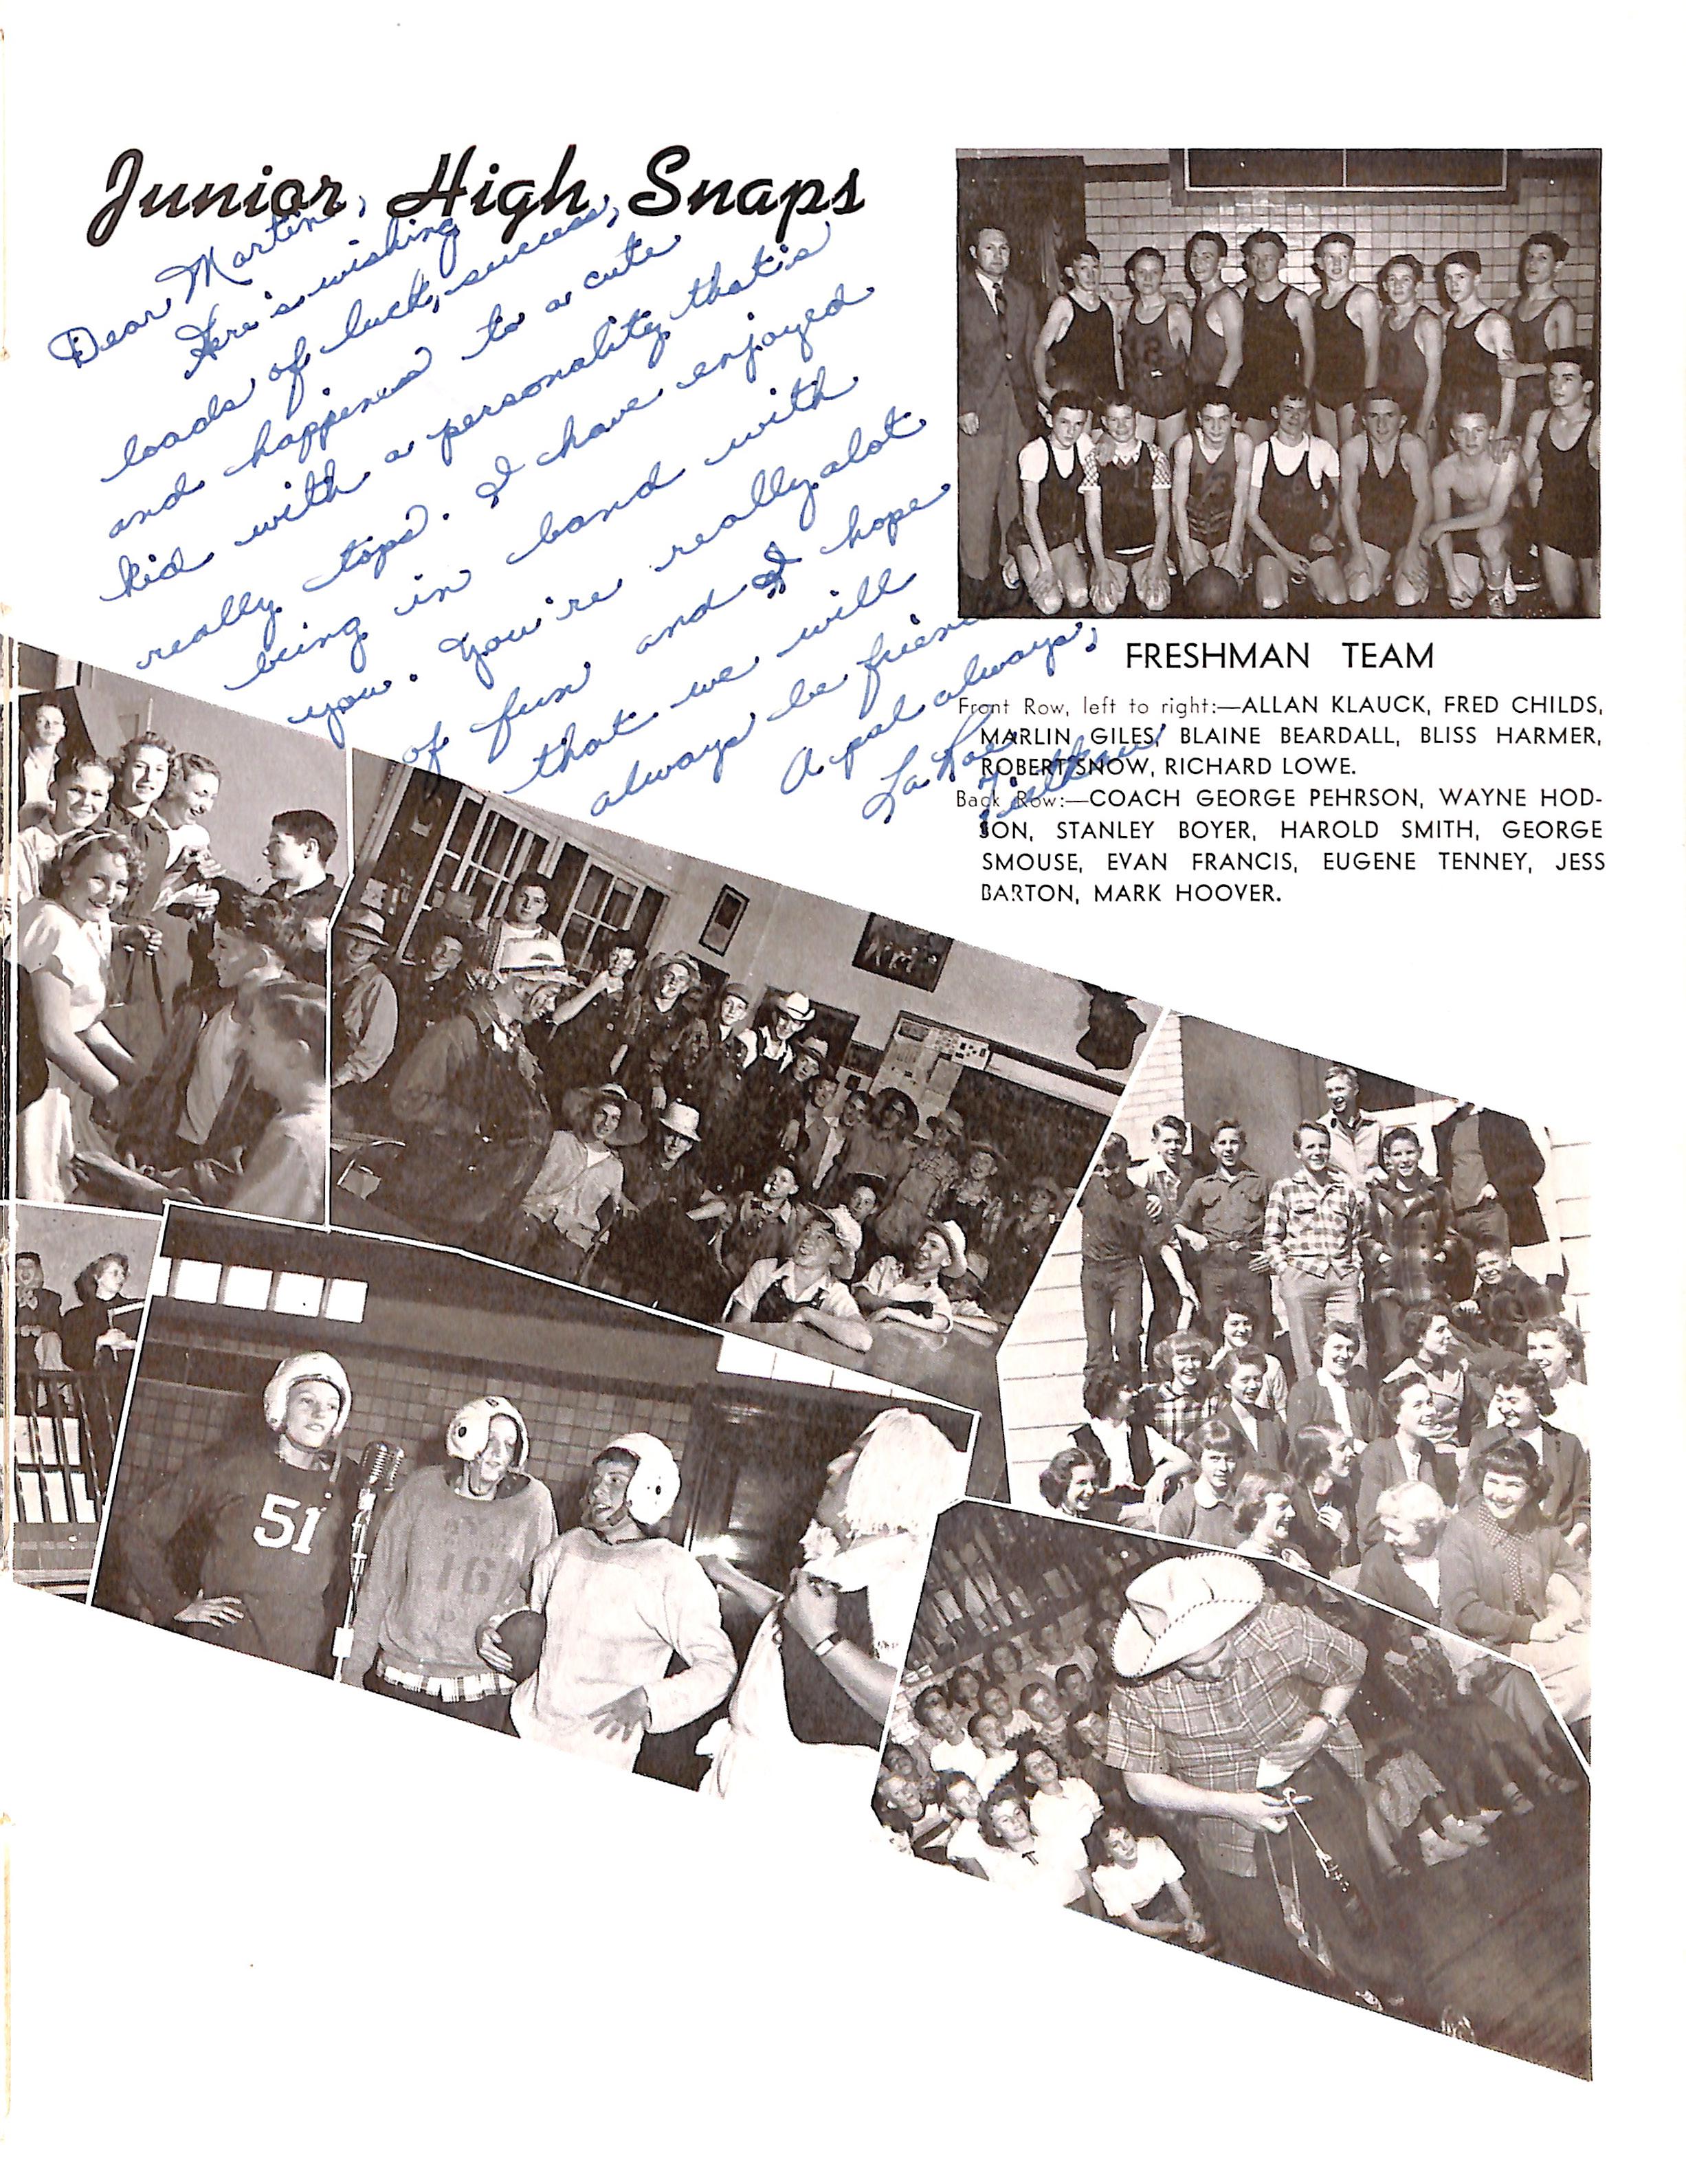 Junior High Snaps
Dear Martin,
Here's wishing
loads of luck, success,
and happiness to a cute
kid with a personality that's
really tops. I have enjoyed
being in band with
you. You're really alot
of fun and I hope
that we will
always be friend
A pal always,
La Rae
FRESHMAN TEAM
Front Row, left to right:—ALLAN KLAUCK, FRED CHILDS,
MARLIN GILES, BLAINE BEARDALL, BLISS HARMER,
ROBERT SNOW, RICHARD LOWE.
Back Row:—COACH GEORGE PEHRSON, WAYNE HOD-
SON, STANLEY BOYER, HAROLD SMITH, GEORGE
SMOUSE, EVAN FRANCIS, EUGENE TENNEY, JESS
BARTON, MARK HOOVER.
51
16